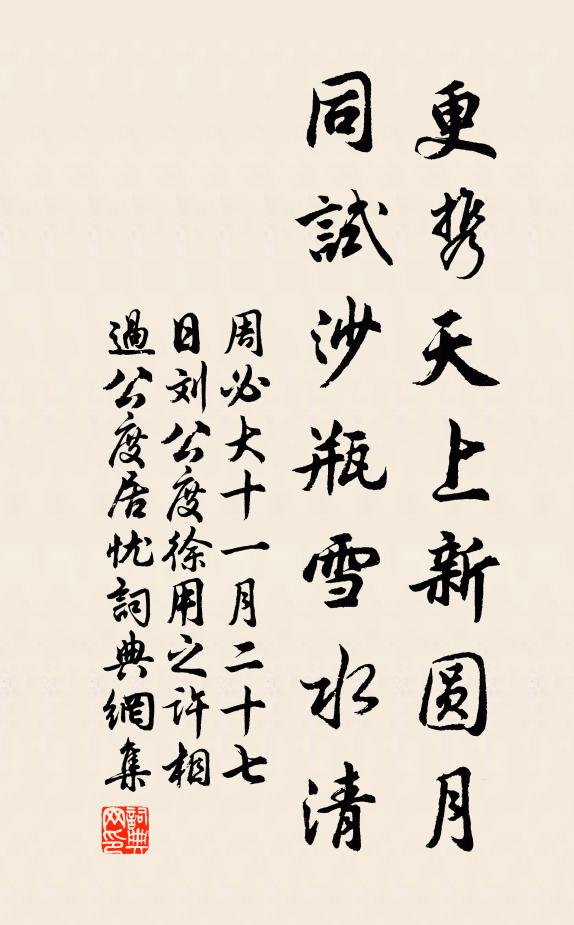 更携天上新圆月
同試沙瓶雪水清
周必大十一月二十七
日刘公度徐用之许相
過公度居忧詞典網集
詞典网印